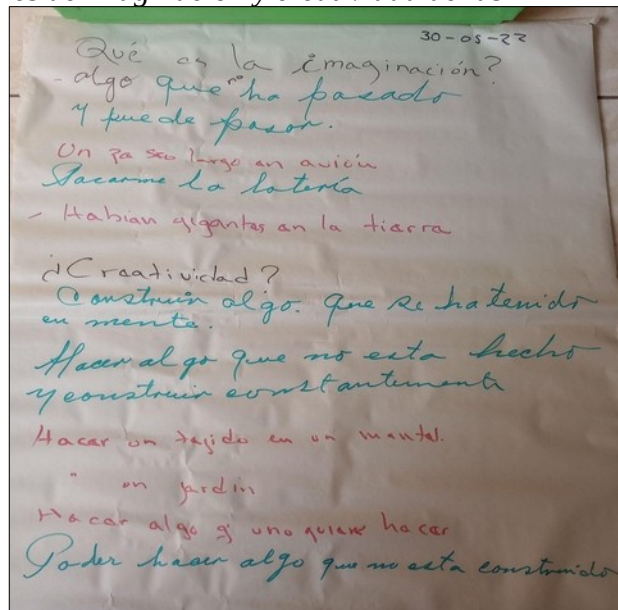 30-05-22
Qué es la imaginación?
- algo que no ha pasado
Y puede pasar.
Un paseo largo en avión
Sacarme la lotería
- Habían gigantes en la tierra
¿Creatividad?
Construir algo. que se ha tenido
en mente.
Hacer algo que no esta hecho
y construir constantemente
Hacer un tejido en un mantel.
" un jardín
Hacer algo q' uno quiere hacer
Poder hacer algo que no esta construido